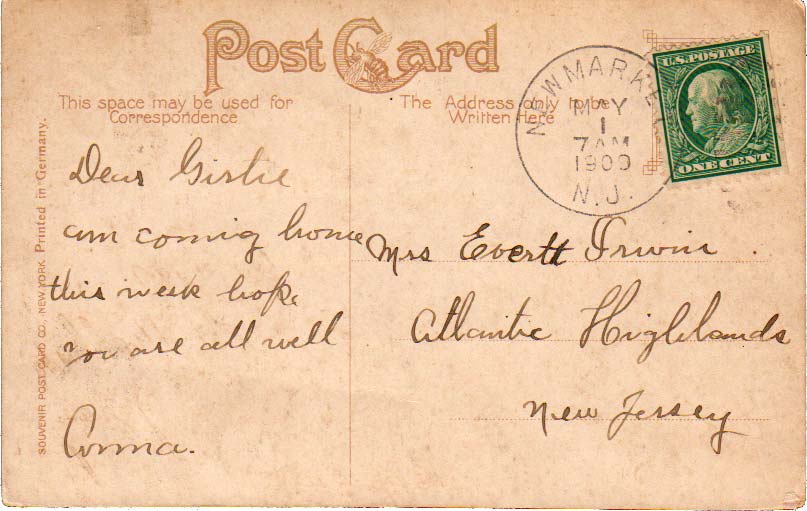 Post Card
This space may be used for
Correspondence
The Address only to be
Written Here
NEW MARKE
MAY
1
7 AM
1909
N.J.
U.S. POSTAGE
ONE CENT
SOUVENIR POST CARD CO., NEW YORK. Printed in Germany.
Dear Girlie
am coming home
this week hope
you are all well
Mrs Evertt Irwin
Atlantic Highlands
New Jersey